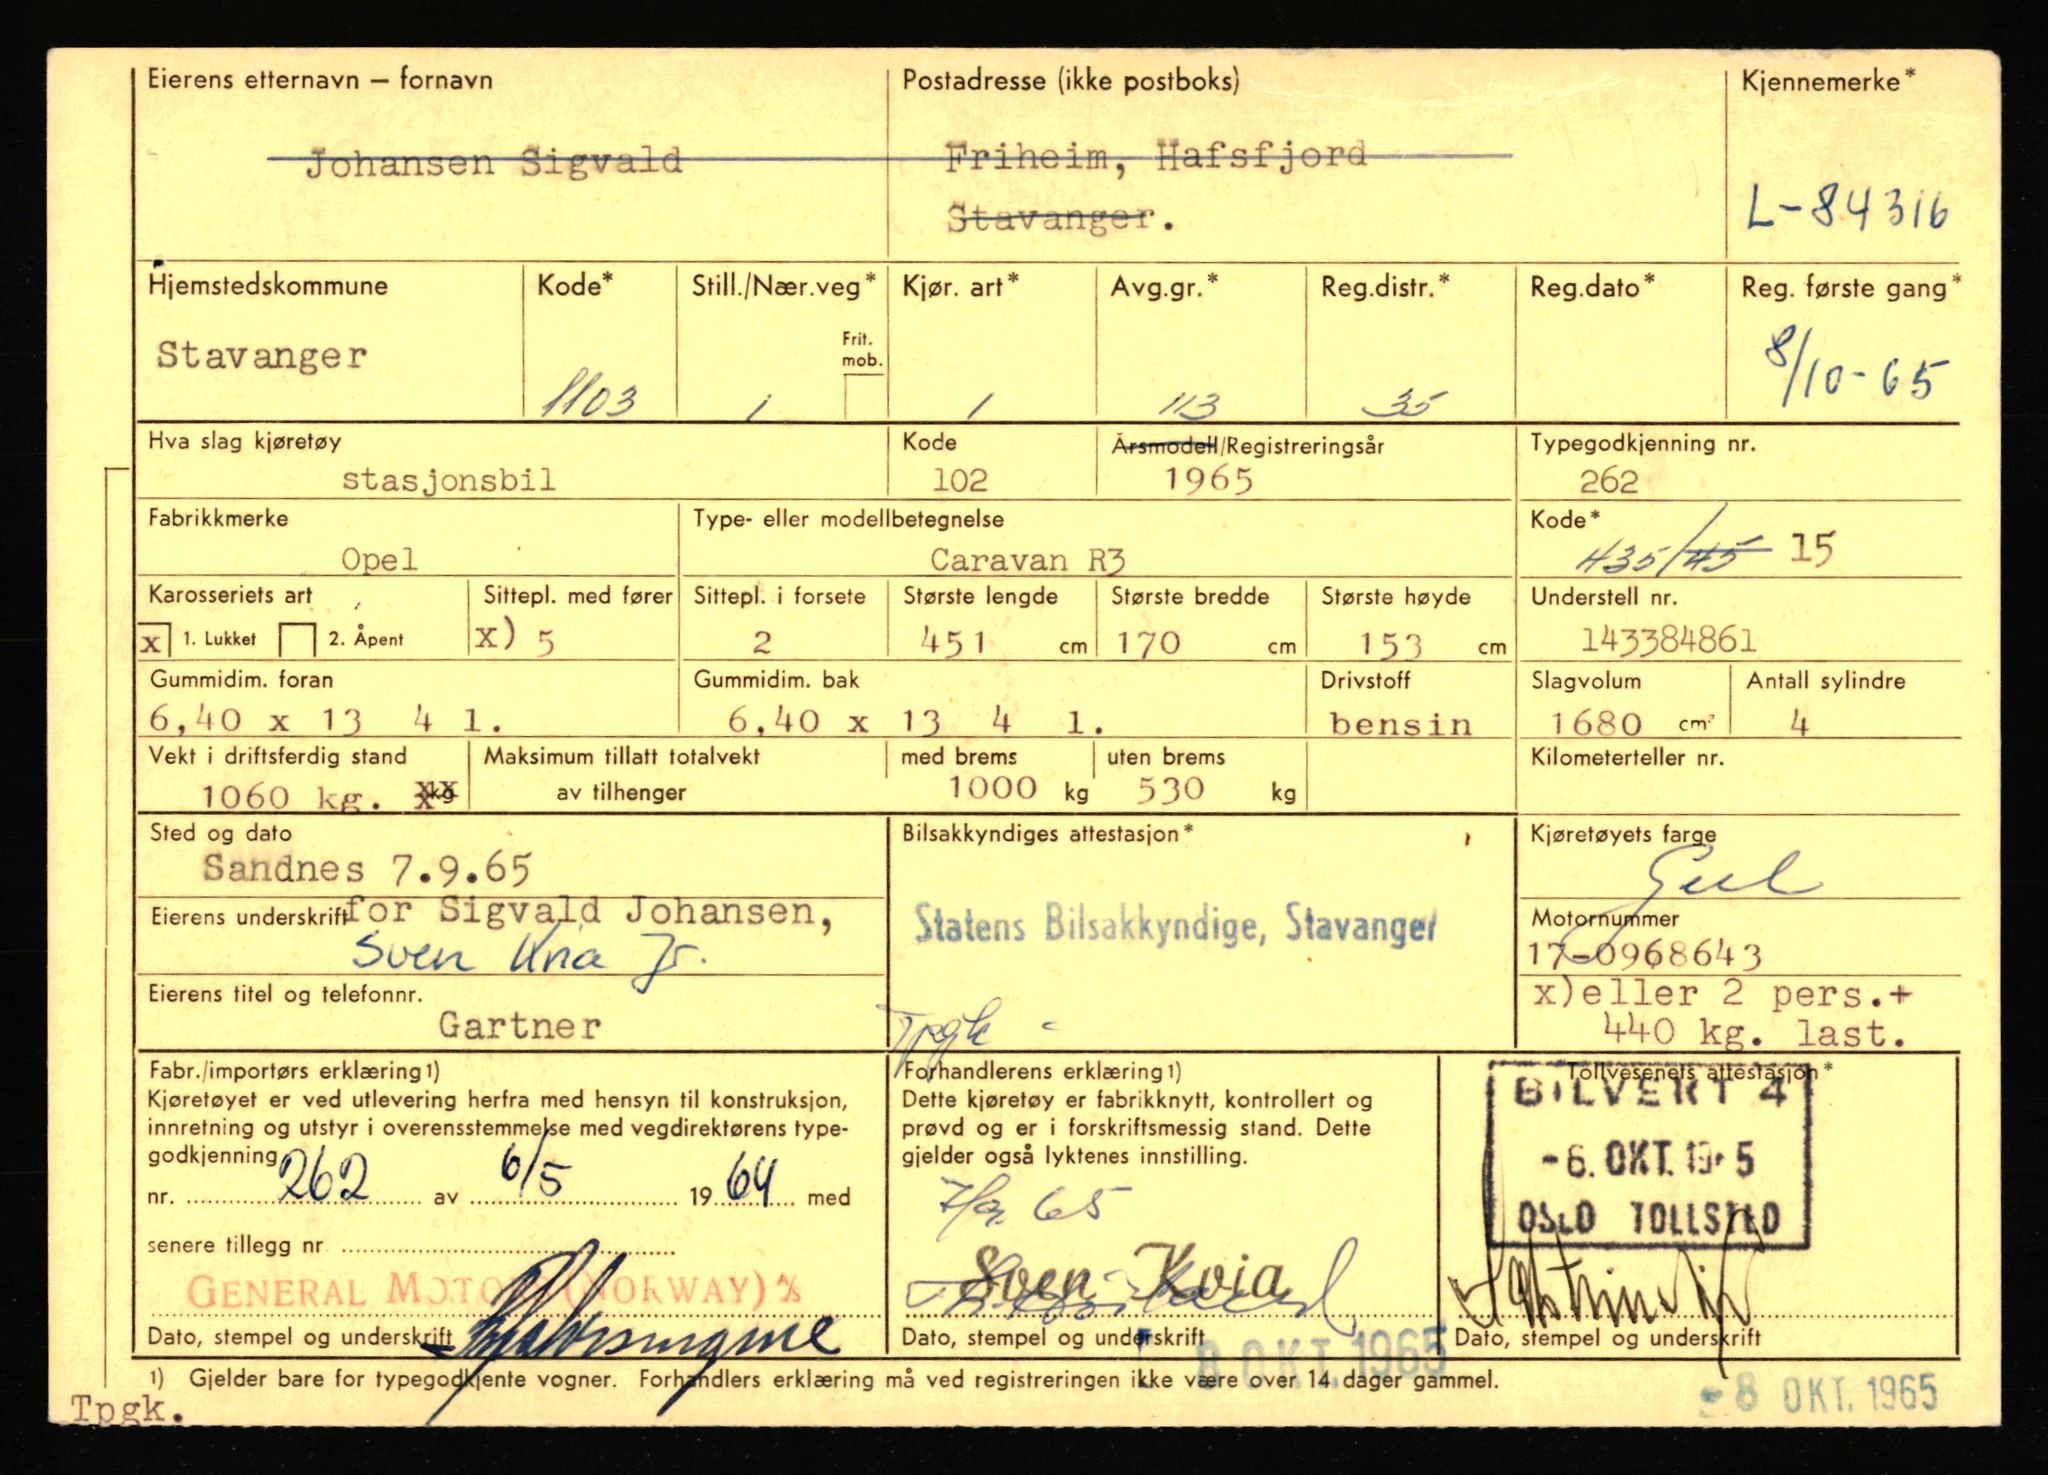 Eierens etternavn – fornavn
Johansen Sigvald
Postadresse (ikke postboks)
Friheim, Hafsfjord
Stavanger.
Kjennemerke*
L-84316
Hjemstedskommune
Stavanger
Kode*
1103
Still./Nær.veg*
Frit.
mob.
1
Kjør. art*
1
Avg.gr.*
113
Reg.distr.*
35
Reg.dato*
Reg. første gang*
8/10-65
Hva slag kjøretøy
stasjonsbil
Kode
102
Årsmodell/Registreringsår
1965
Typegodkjenning nr.
262
Fabrikkmerke
Opel
Type- eller modellbetegnelse
Caravan R3
Kode*
435/45 15
Karosseriets art
x 1. Lukket 2. Åpent
Sittepl. med fører
x) 5
Sittepl. i forsete
2
Største lengde
451 cm
Største bredde
170 cm
Største høyde
153 cm
Understell nr.
143384861
Gummidim. foran
6,40 x 13 4 l.
Gummidim. bak
6,40 x 13 4 l.
Drivstoff
bensin
Slagvolum
1680 cm³
Antall sylindre
4
Vekt i driftsferdig stand
1060 kg. xx kg
Maksimum tillatt totalvekt
av tilhenger
med brems
1000 kg
uten brems
530 kg
Kilometerteller nr.
Sted og dato
Sandnes 7.9.65
Eierens underskrift for Sigvald Johansen,
Sven Kvia Jr.
Eierens titel og telefonnr.
Gartner
Bilsakkyndiges attestasjon*
Statens Bilsakkyndige, Stavanger
Tpgk -
Kjøretøyets farge
Gul
Motornummer
17-0968643
x)eller 2 pers.+
440 kg. last.
Fabr./importørs erklæring1)
Kjøretøyet er ved utlevering herfra med hensyn til konstruksjon,
innretning og utstyr i overensstemmelse med vegdirektørens type-
godkjenning
nr. 262 av 6/5 1964 med
senere tillegg nr
GENERAL MOTORS (NORWAY) A/S
Dato, stempel og underskrift
Forhandlerens erklæring1)
Dette kjøretøy er fabrikknytt, kontrollert og
prøvd og er i forskriftsmessig stand. Dette
gjelder også lyktenes innstilling.
7/9 65
Sven Kvia
Dato, stempel og underskrift
8 OKT. 1965
Tollvesenets attestasjon*
BILVERT 4
-6. OKT. 1965
OSLO TOLLSTED
Dato, stempel og underskrift
1) Gjelder bare for typegodkjente vogner. Forhandlers erklæring må ved registreringen ikke være over 14 dager gammel.
-8 OKT. 1965
Tpgk.